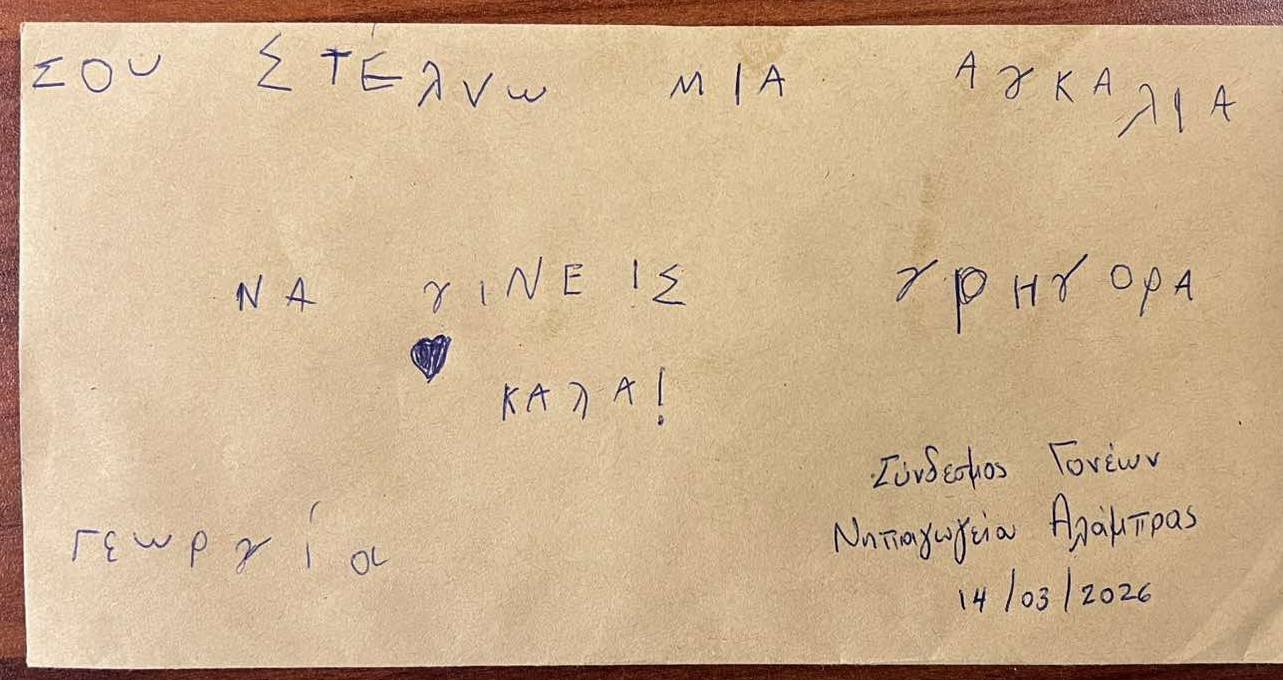 ΣΟυ ΣΤΕλνω ΜΙΑ ΑγΚΑλιΑ
ΝΑ γιΝΕΙΣ γρΗγΟρΑ
ΚΑλΑ!
Γεωργία
Σύνδεσμος Γονέων
Νηπιαγωγείου Αλάμπρας
14/03/2026